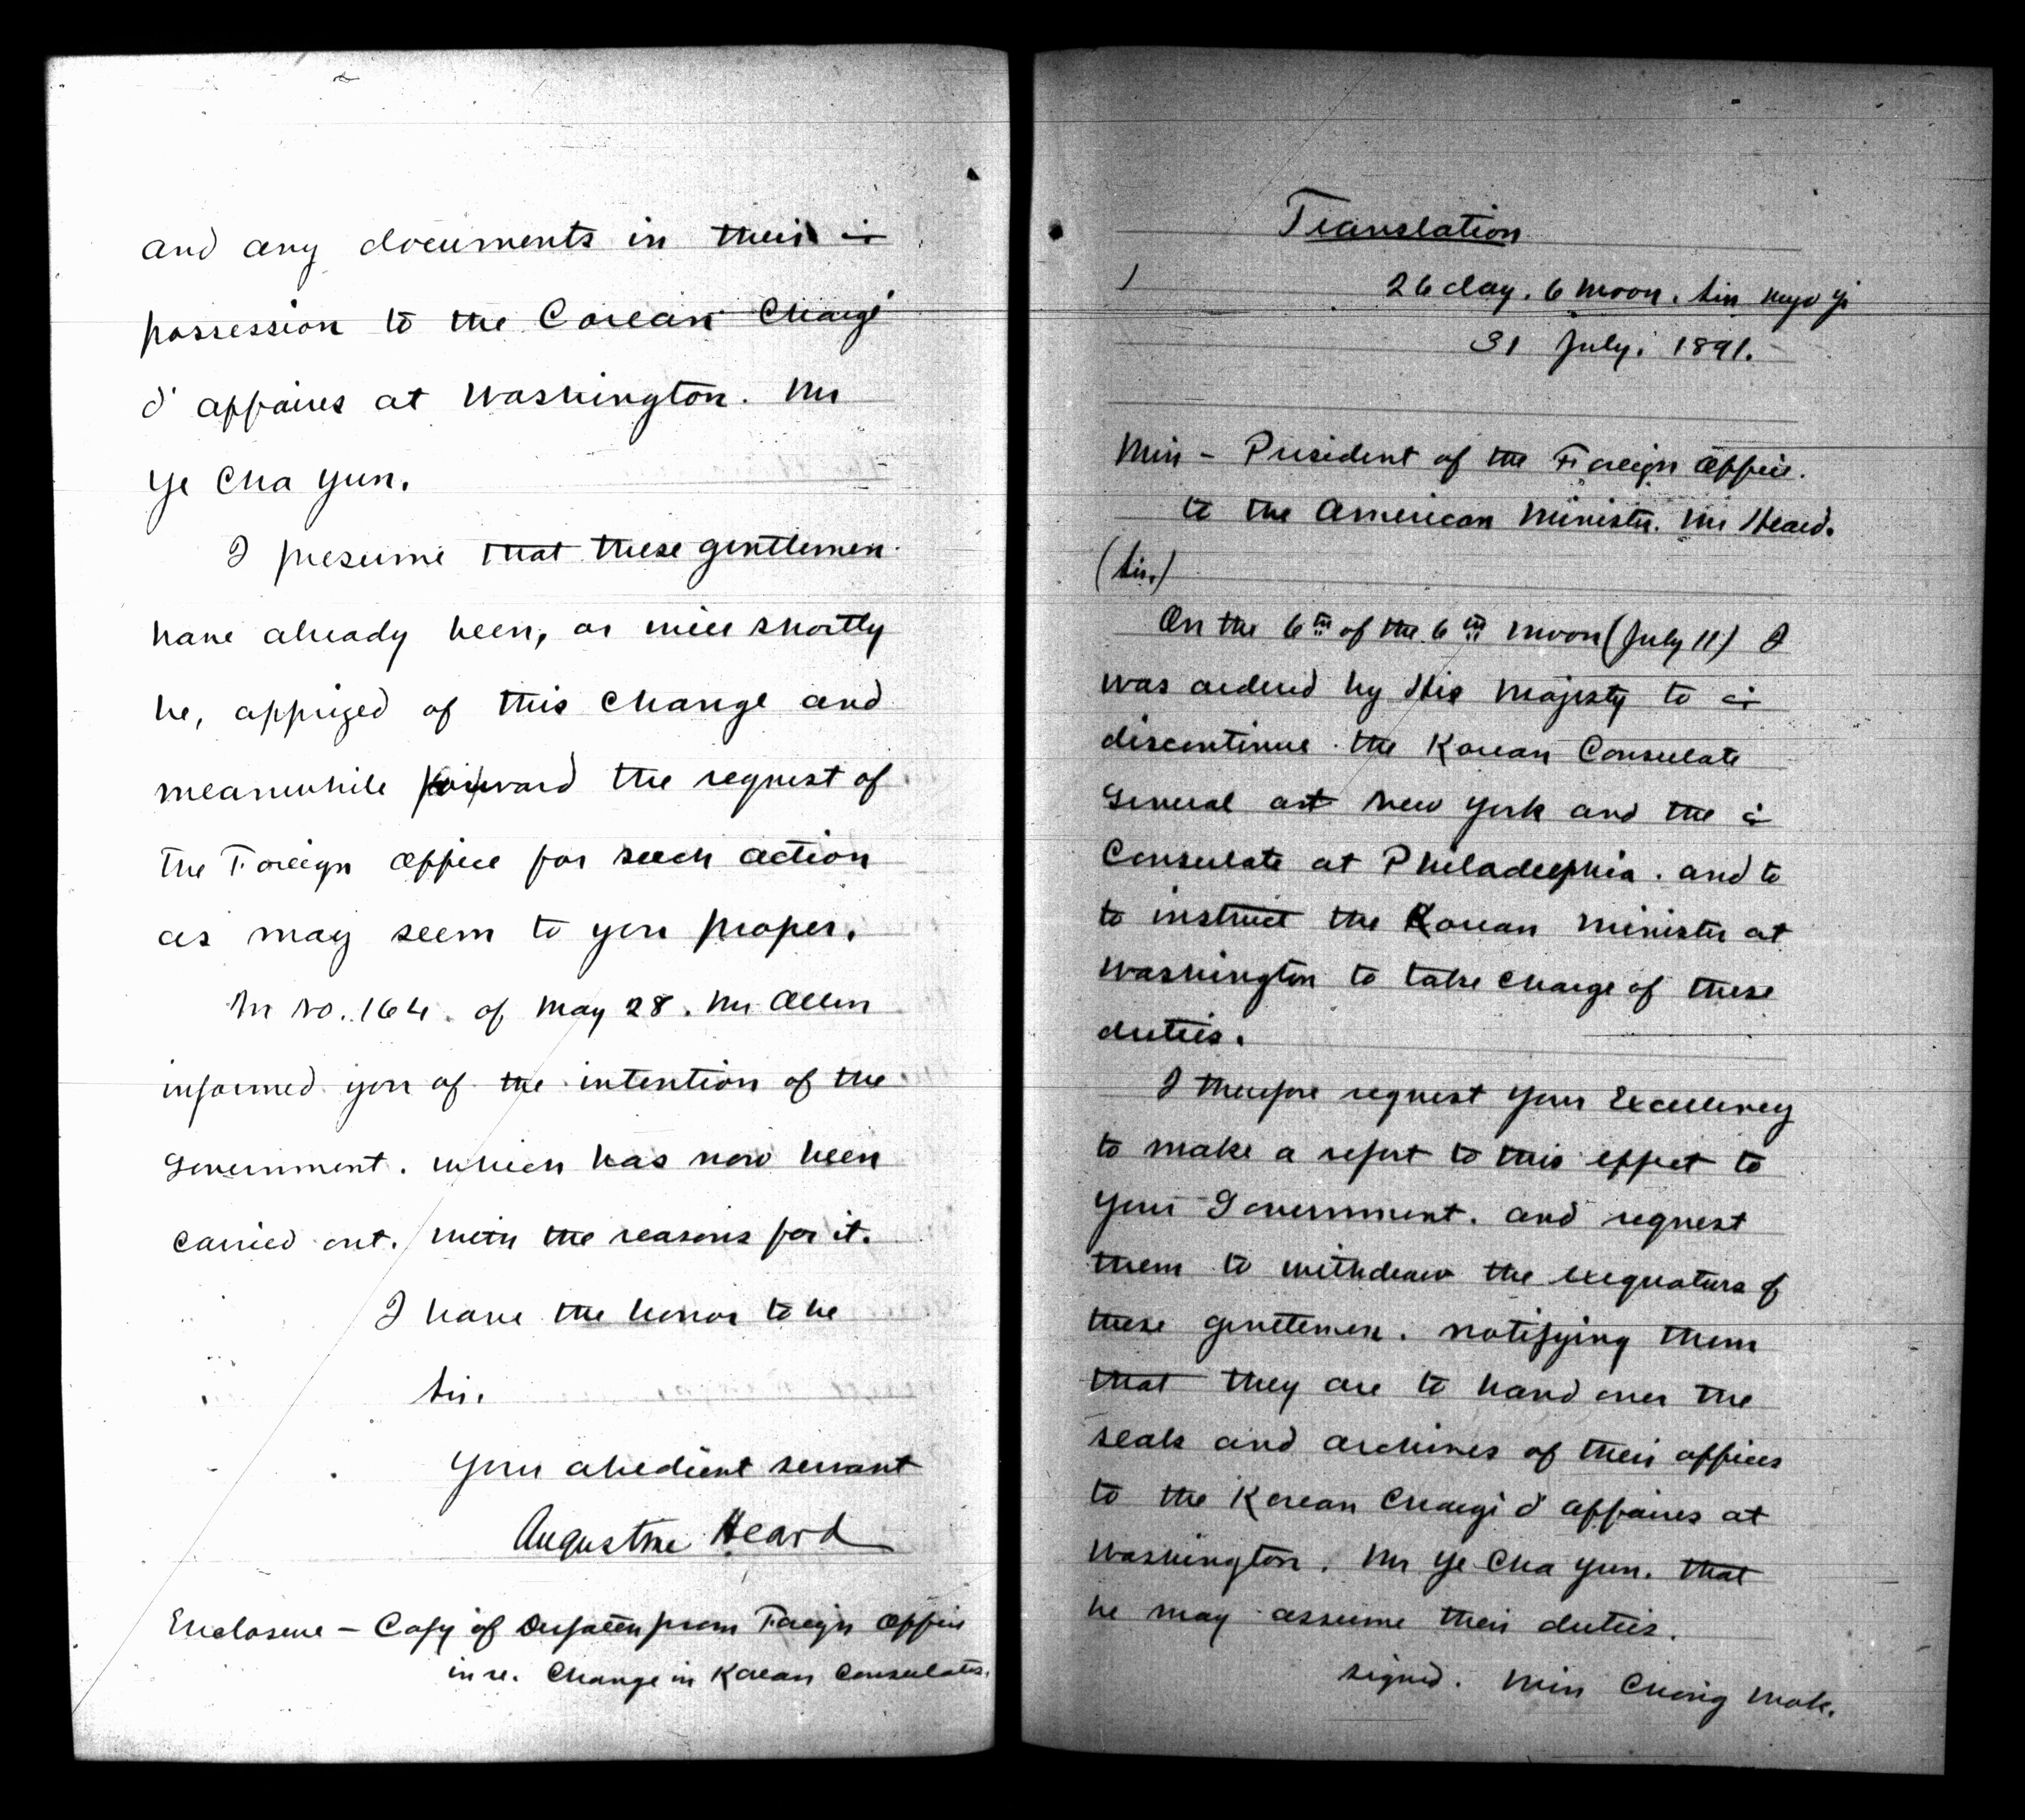 and any documents in their
possession to the Corean Chargé
d'affaires at Washington. Mr
Ye Cha Yun.
I presume that these gentlemen
have already been, or will shortly
be, apprized of this change and
meanwhile forward the request of
the Foreign Office for such action
as may seem to you proper.
In No. 164. of May 28. Mr Allen
informed you of the intention of the
Government. which has now been
carried out. with the reasons for it.
I have the honor to be
Sir.
Your obedient servant
Augustine Heard
Enclosure – Copy of Despatch from Foreign Office
in re. Change in Korean Consulates.
Translation
26 day. 6 moon. Sin myo
31 July. 1891.
Min – President of the Foreign Office.
to the American Minister. Mr Heard.
(Sir.)
On the 6th of the 6th moon (July 11) I
was ordered by His Majesty to
discontinue the Korean Consulate
General at New York and the
Consulate at Philadelphia. and to
to instruct the Korean Minister at
Washington to take charge of these
duties.
I therefore request Your Excellency
to make a report to this effect to
your Government. and request
them to withdraw the exequaturs of
these gentlemen. notifying them
that they are to hand over the
seals and archives of their offices
to the Korean Chargé d'affaires at
Washington. Mr Ye Cha Yun. that
he may assume their duties.
signed. Min Chong Mok.